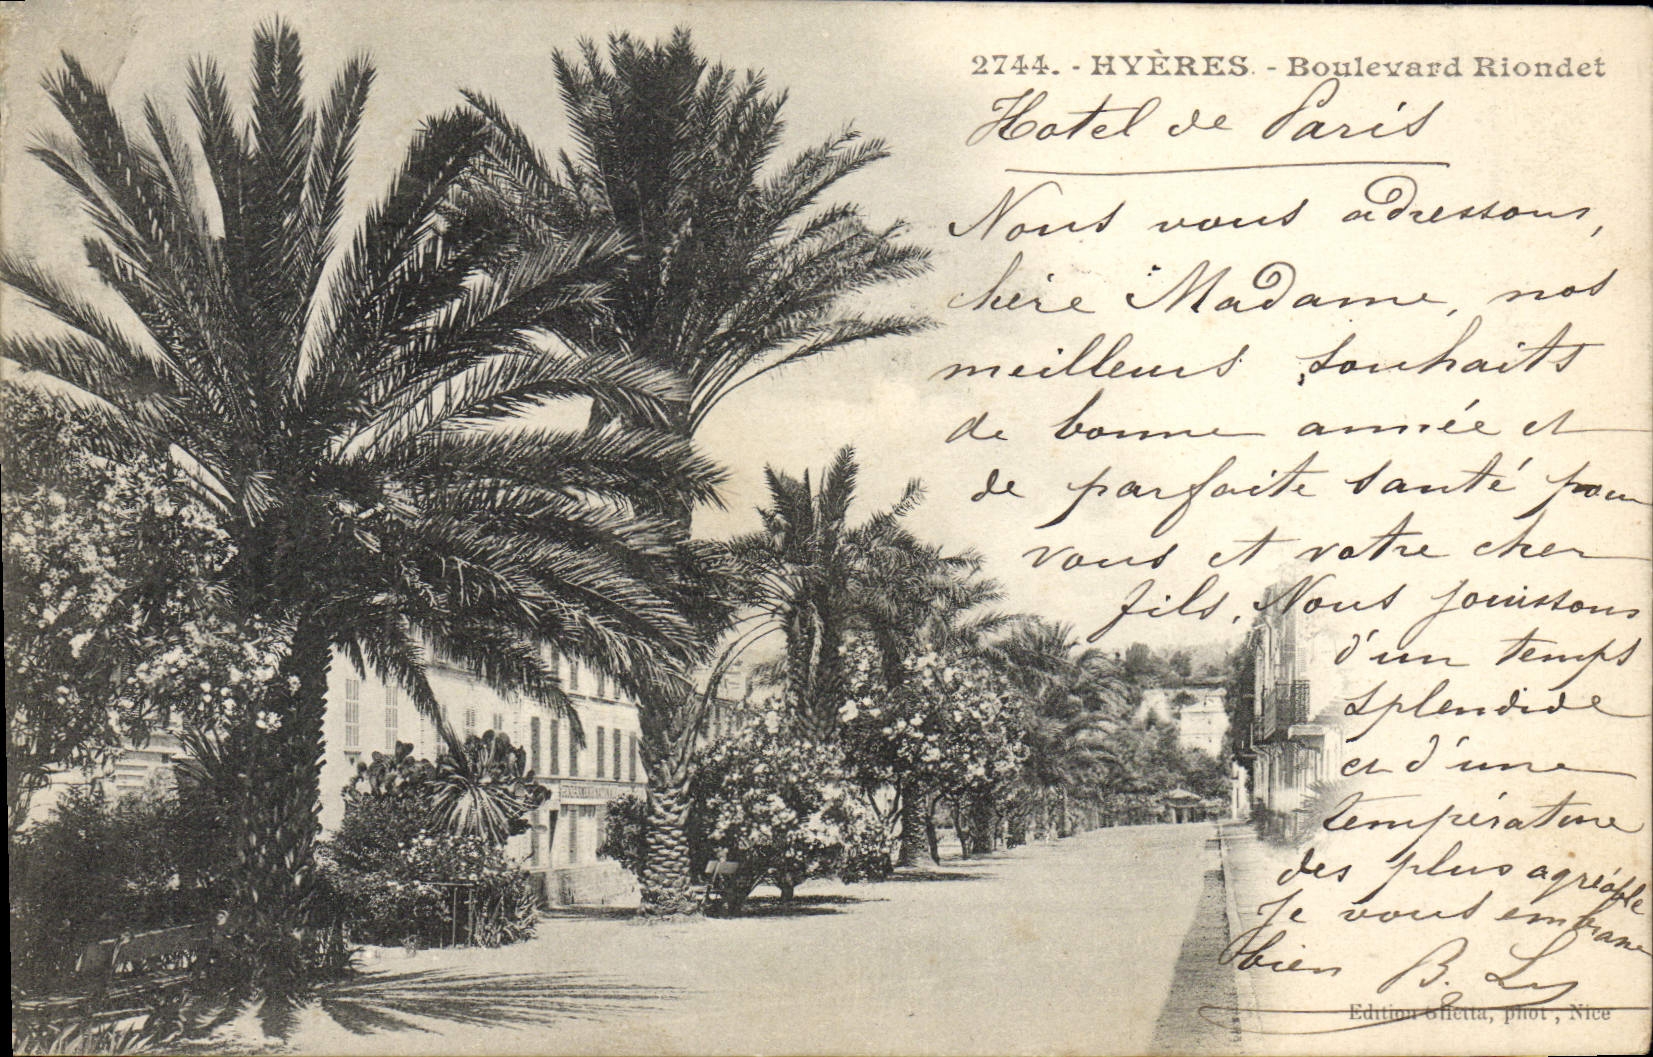 2744. - HYÈRES. - Boulevard Riondet
Hotel de Paris
Nous vous adressons,
chère Madame, nos
meilleurs souhaits
de bonne année et
de parfaite santé pour
vous et votre cher
fils. Nous jouissons
d'un temps
splendide
et d'une
température
des plus agréable
Je vous embrasse
bien B.
Edition Giletta, phot, Nice